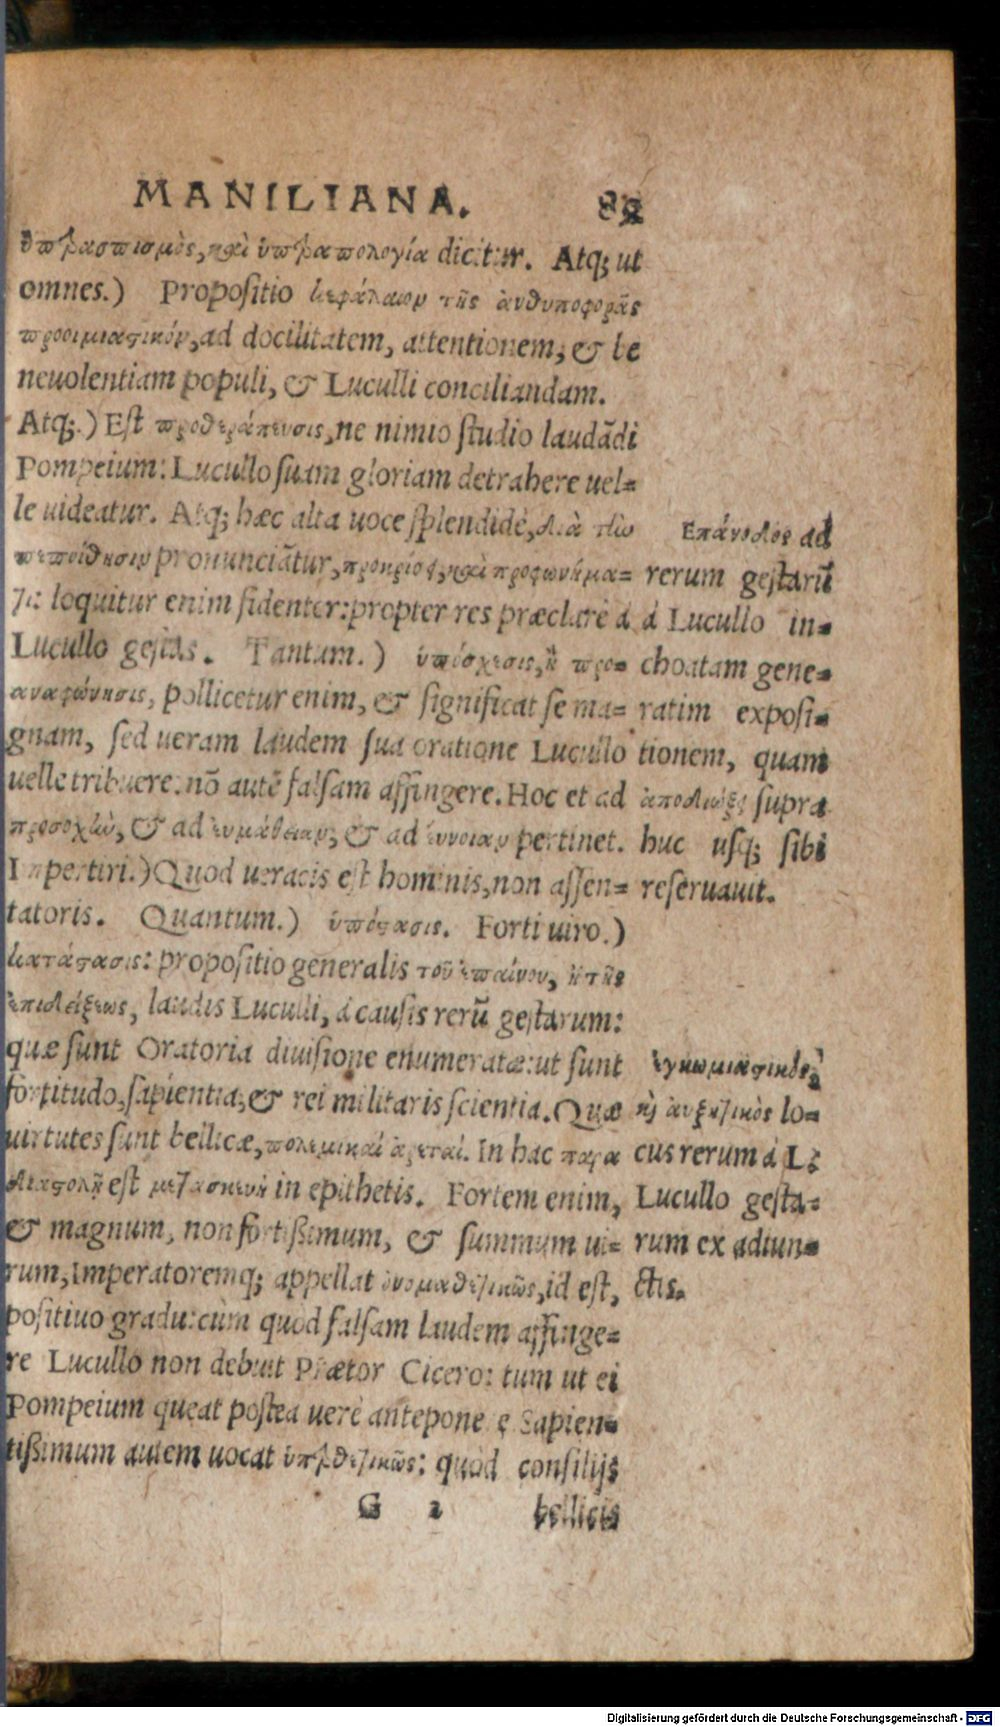 MANILIANA. 89
ὑπερασπισμὸς, καὶ ὑπεραπολογία dicitur. Atq; ut
omnes.) Propositio κεφάλαιον τῆς ἀνθυποφορᾶς
προοιμιαστικόν, ad docilitatem, attentionem, & be
neuolentiam populi, & Luculli conciliandam.
Atq;.) Est προθεράπευσις, ne nimio studio laudādi
Pompeium: Lucullo suam gloriam detrahere uel=
le uideatur. Atq; hæc alta uoce splendidè, διὰ τὴν
πεποίθησιν pronunciātur, καὶ προφωνήμα=
loquitur enim fidenter: propter res præclarè à
Lucullo gestas. Tantum.) ὑπόσχεσις, ἢ προ=
αναφώνησις, pollicetur enim, & significat se ma=
gnam, sed ueram laudem sua oratione Lucullo
uelle tribuere: nō autē falsam affingere. Hoc et ad
προσοχὴν, & ad εὐμάθειαν, & ad εὔνοιαν pertinet.
Impertiri.) Quod ueracis est hominis, non assen=
tatoris. Quantum.) ὑπόστασις. Forti uiro.)
κατάστασις: propositio generalis τοῦ ἐπαίνου, ἢ τῆς
ἐπιδείξεως, laudis Luculli, à causis rerū gestarum:
quæ sunt Oratoria diuisione enumeratæ: ut sunt
fortitudo, sapientia, & rei militaris scientia. Quæ
uirtutes sunt bellicæ, πολεμικαὶ ἀρεταί. In hac παρα
διαστολῇ est μετασκευὴ in epithetis. Fortem enim,
& magnum, non fortissimum, & summum ui=
rum, Imperatoremq; appellat ὀνομαθετικῶς, id est,
positiuo gradu: cùm quod falsam laudem affinge=
re Lucullo non debuit Prætor Cicero: tum ut ei
Pompeium queat postea uerè antepone e Sapien=
tissimum autem uocat ὑπερθετικῶς: quòd consilijs
G 1 bellicis
Επάνοδος ad
rerum gestarū
à Lucullo in=
choatam gene=
ratim exposi=
tionem, quam
ἀποδιώξει supra
huc usq; sibi
reseruauit.
ἐγκωμιαστικὸς,
καὶ αὐξητικὸς lo=
cus rerum à L:
Lucullo gesta=
rum ex adiun=
ctis.
Digitalisierung gefördert durch die Deutsche Forschungsgemeinschaft - DFG